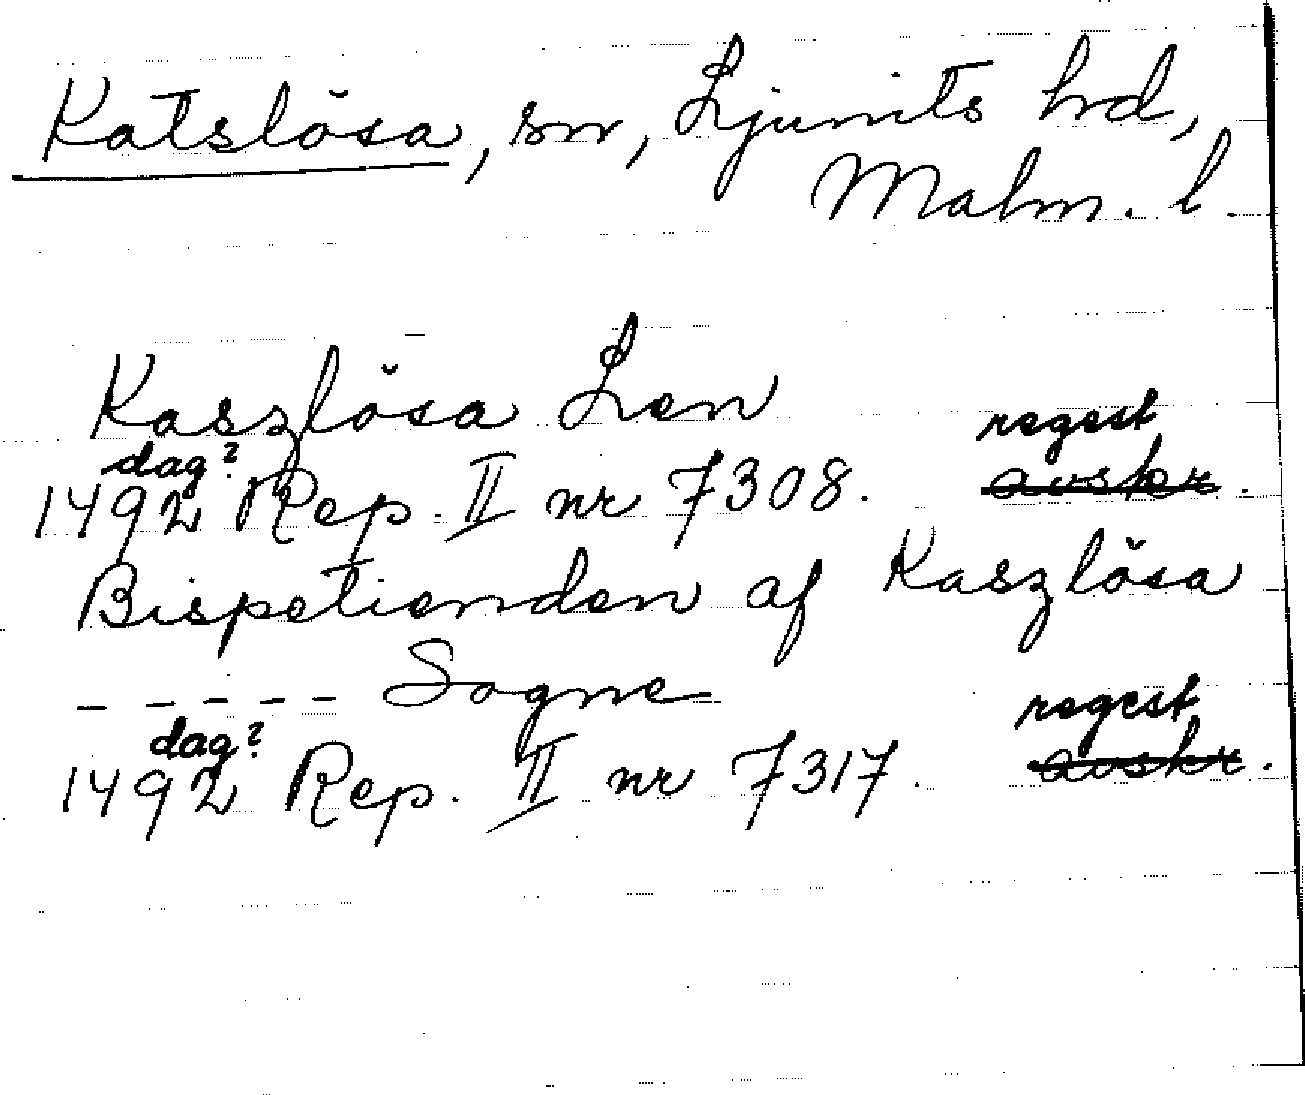 Katslösa, sn, Ljunits hd,
Malm. l.
Kaszlösa Len
dag? regest
1492 Rep. II nr 7308. ~~avskr~~.
Bispetienden af Kaszlösa
– – – – – Sogne
dag? regest
1492 Rep. II nr 7317. ~~avskr~~.